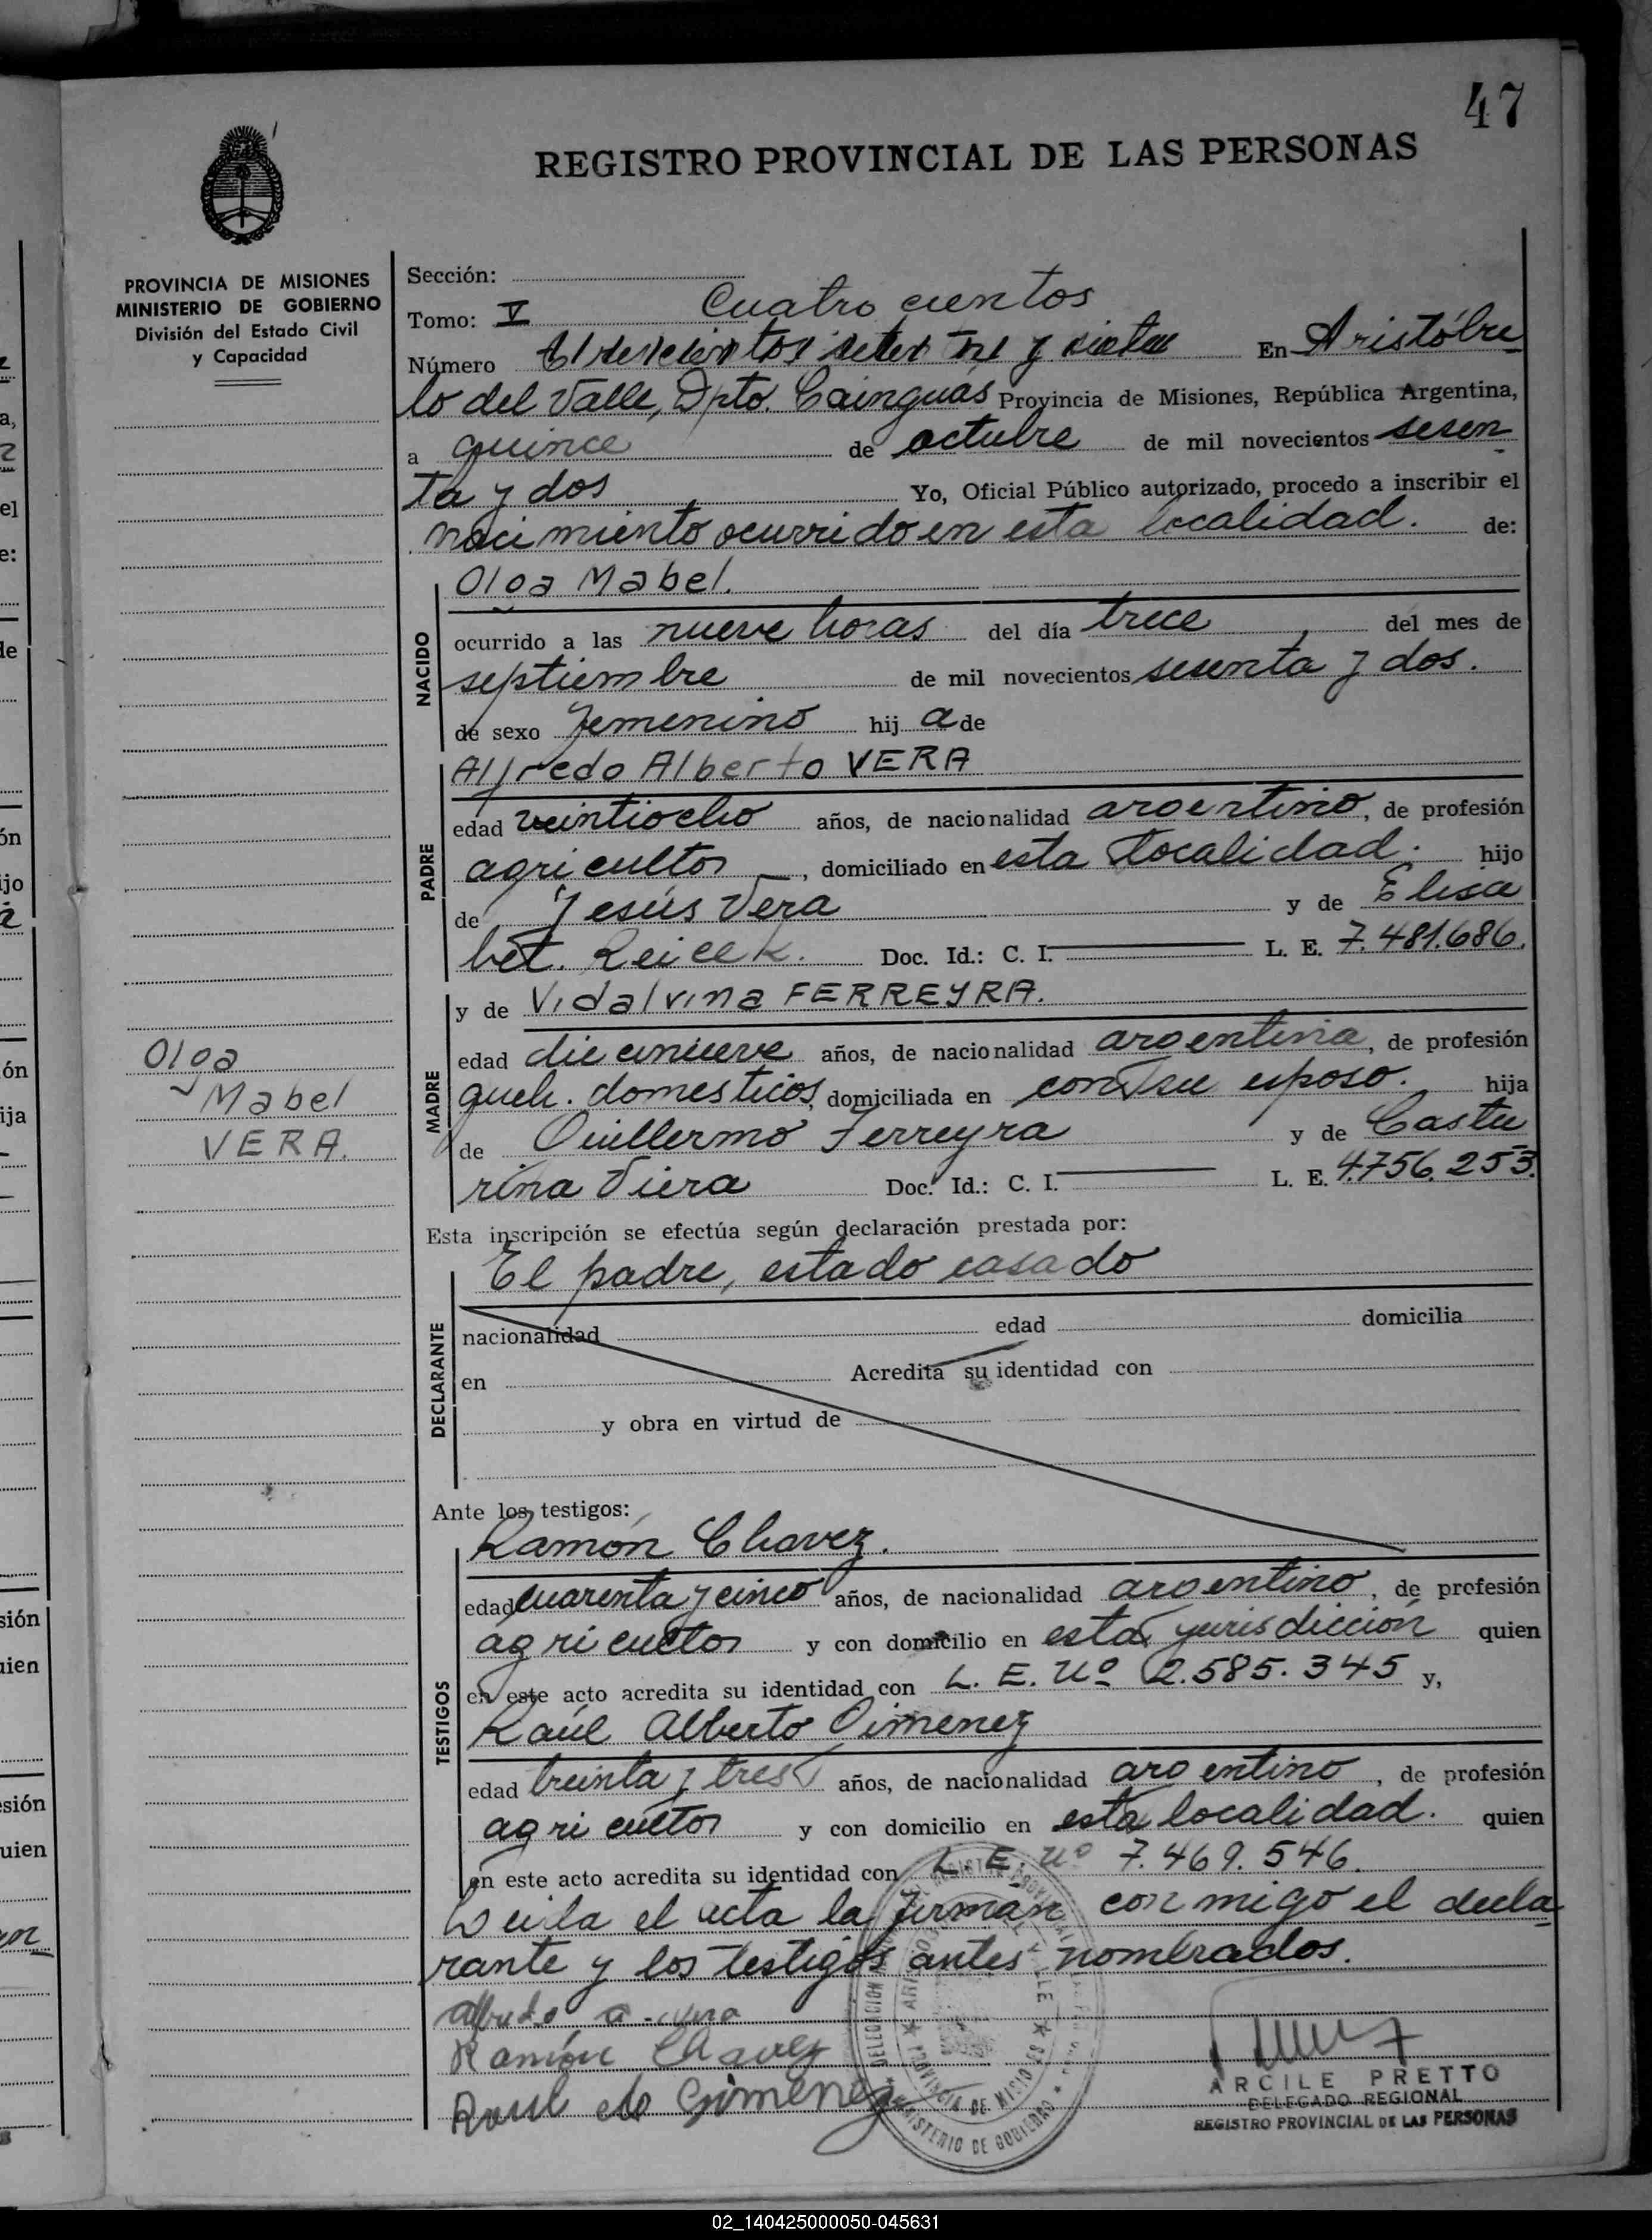 47
REGISTRO PROVINCIAL DE LAS PERSONAS
PROVINCIA DE MISIONES
MINISTERIO DE GOBIERNO
División del Estado Civil
y Capacidad
Sección:
Tomo: V Cuatro cientos
Número setenta y siete En Aristóbu
lo del Valle, Dpto. Cainguás Provincia de Misiones, República Argentina,
a quince de octubre de mil novecientos sesen
ta y dos Yo, Oficial Público autorizado, procedo a inscribir el
nacimiento ocurrido en esta localidad. de:
NACIDO
Olga Mabel.
ocurrido a las nueve horas del día trece del mes de
septiembre de mil novecientos sesenta y dos.
de sexo femenino hij a de
PADRE
Alfredo Alberto VERA
edad veintiocho años, de nacionalidad argentino, de profesión
agricultor, domiciliado en esta localidad. hijo
de Jesús Vera y de Elisa
bet. Reicek. Doc. Id.: C. I. L. E. 7.481.686.
MADRE
y de Vidalvina FERREYRA.
edad diecinueve años, de nacionalidad argentina, de profesión
queh. domesticos, domiciliada en con su esposo. hija
de Guillermo Ferreyra y de Castu
rina Viera Doc. Id.: C. I. L. E. 4.756.253.
Olga
Mabel
VERA.
Esta inscripción se efectúa según declaración prestada por:
DECLARANTE
El padre, estado casado
nacionalidad edad domicilia
en Acredita su identidad con
y obra en virtud de
Ante los testigos:
TESTIGOS
Ramón Chavez.
edad cuarenta y cinco años, de nacionalidad argentino, de profesión
agricultor y con domicilio en esta jurisdicción quien
en este acto acredita su identidad con L. E. Nº 2.585.345 y,
Raúl Alberto Gimenez
edad treinta y tres años, de nacionalidad argentino, de profesión
agricultor y con domicilio en esta localidad. quien
en este acto acredita su identidad con L. E. Nº 7.469.546.
Leida el acta la firman conmigo el decla
rante y los testigos antes nombrados.
Alfredo A. Vera
Ramón Chavez
Raul Gimenez
ARCILE PRETTO
DELEGADO REGIONAL
REGISTRO PROVINCIAL DE LAS PERSONAS
02_140425000050-045631